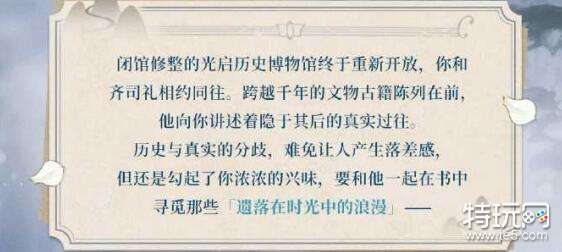 闭馆修整的光启历史博物馆终于重新开放，你和
齐司礼相约同往。跨越千年的文物古籍陈列在前，
他向你讲述着隐于其后的真实过往。
历史与真实的分歧，难免让人产生落差感，
但还是勾起了你浓浓的兴味，要和他一起在书中
寻觅那些「遗落在时光中的浪漫」——
特玩网
www.te5.com